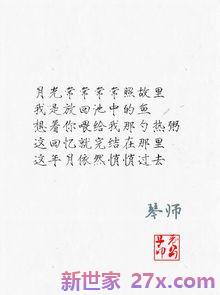 月光常常常常照故里
我是放回池中的鱼
想着你喂给我那勺热粥
这回忆就完结在那里
这年月依然悄悄过去
琴师
新世家 27x.com